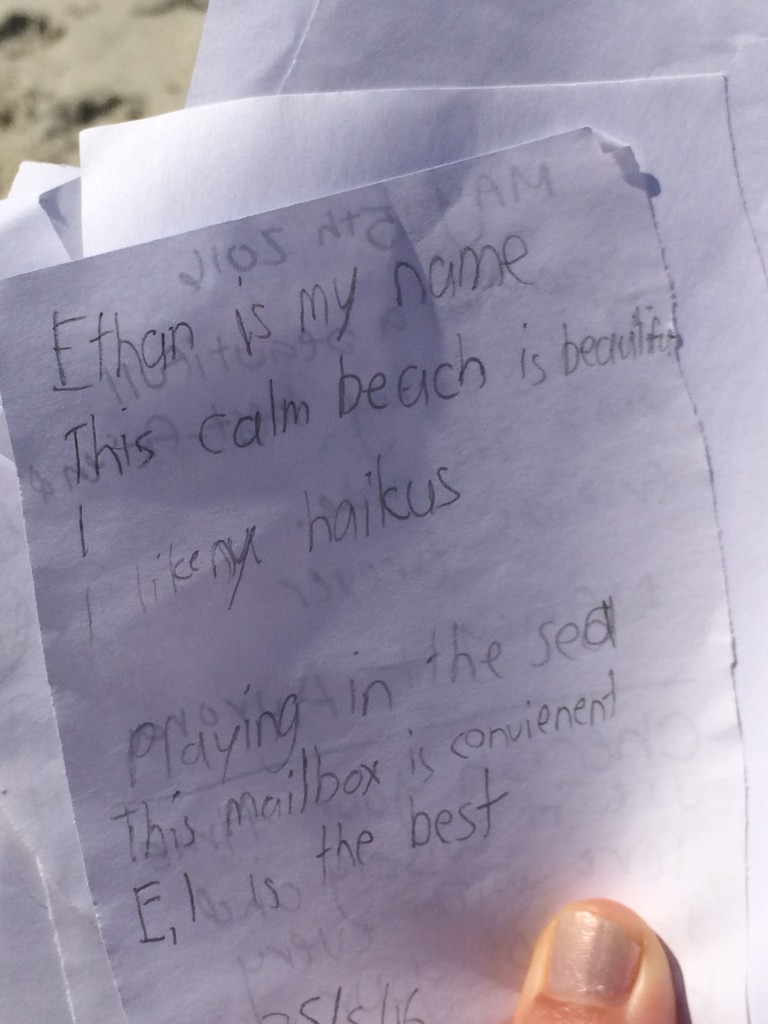 Ethan is my name
This calm beach is beautiful
I
I like haikus
playing in the sea
This mailbox is convienent
is the best
25/5/16